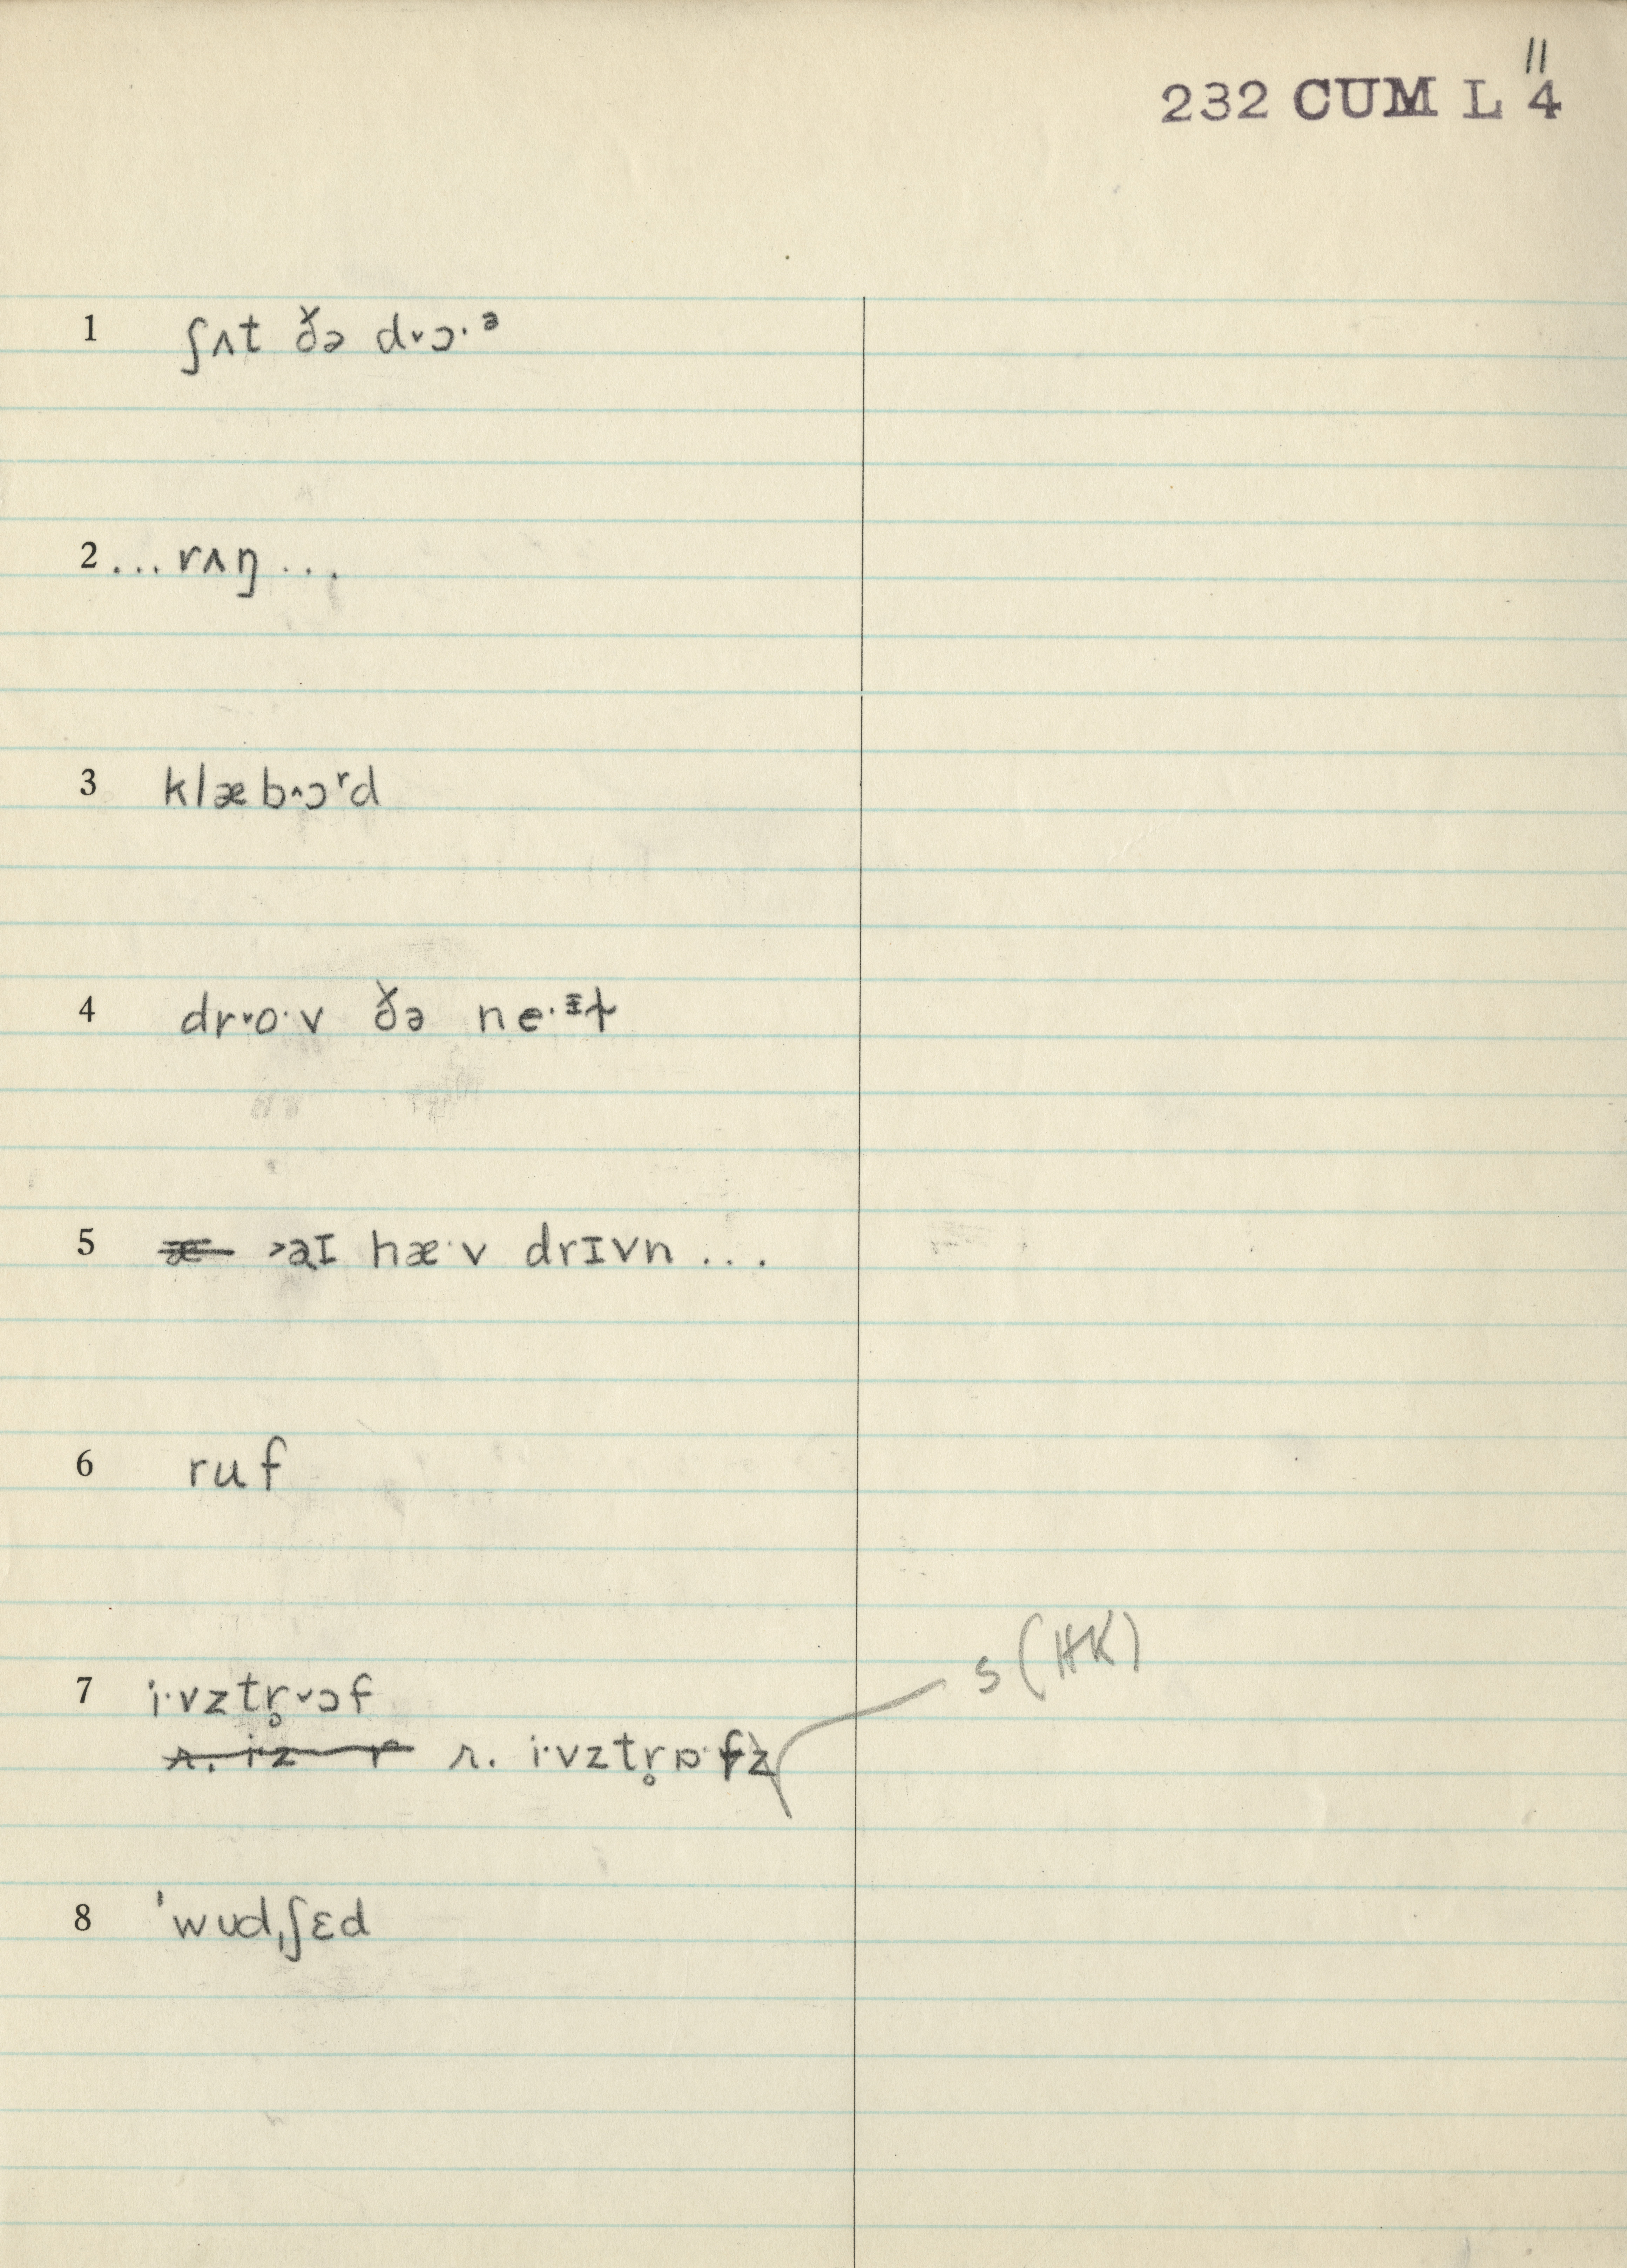 11
232 CUM L 4
1 ʃʌt ðə d˅ɔ·ᵊ
2 ... rʌŋ ...
3 klæb˄ɔʳd
4 dr˅o·v ðə ne·ᶦt
5 æ ˃aɪ hæ·v drɪvn ...
6 ruf
7 i·vztr̥˅ɔf
s (HK)
r. iz r r. i·vztr̥ɒ·fz
8 ˈwud,ʃɛd